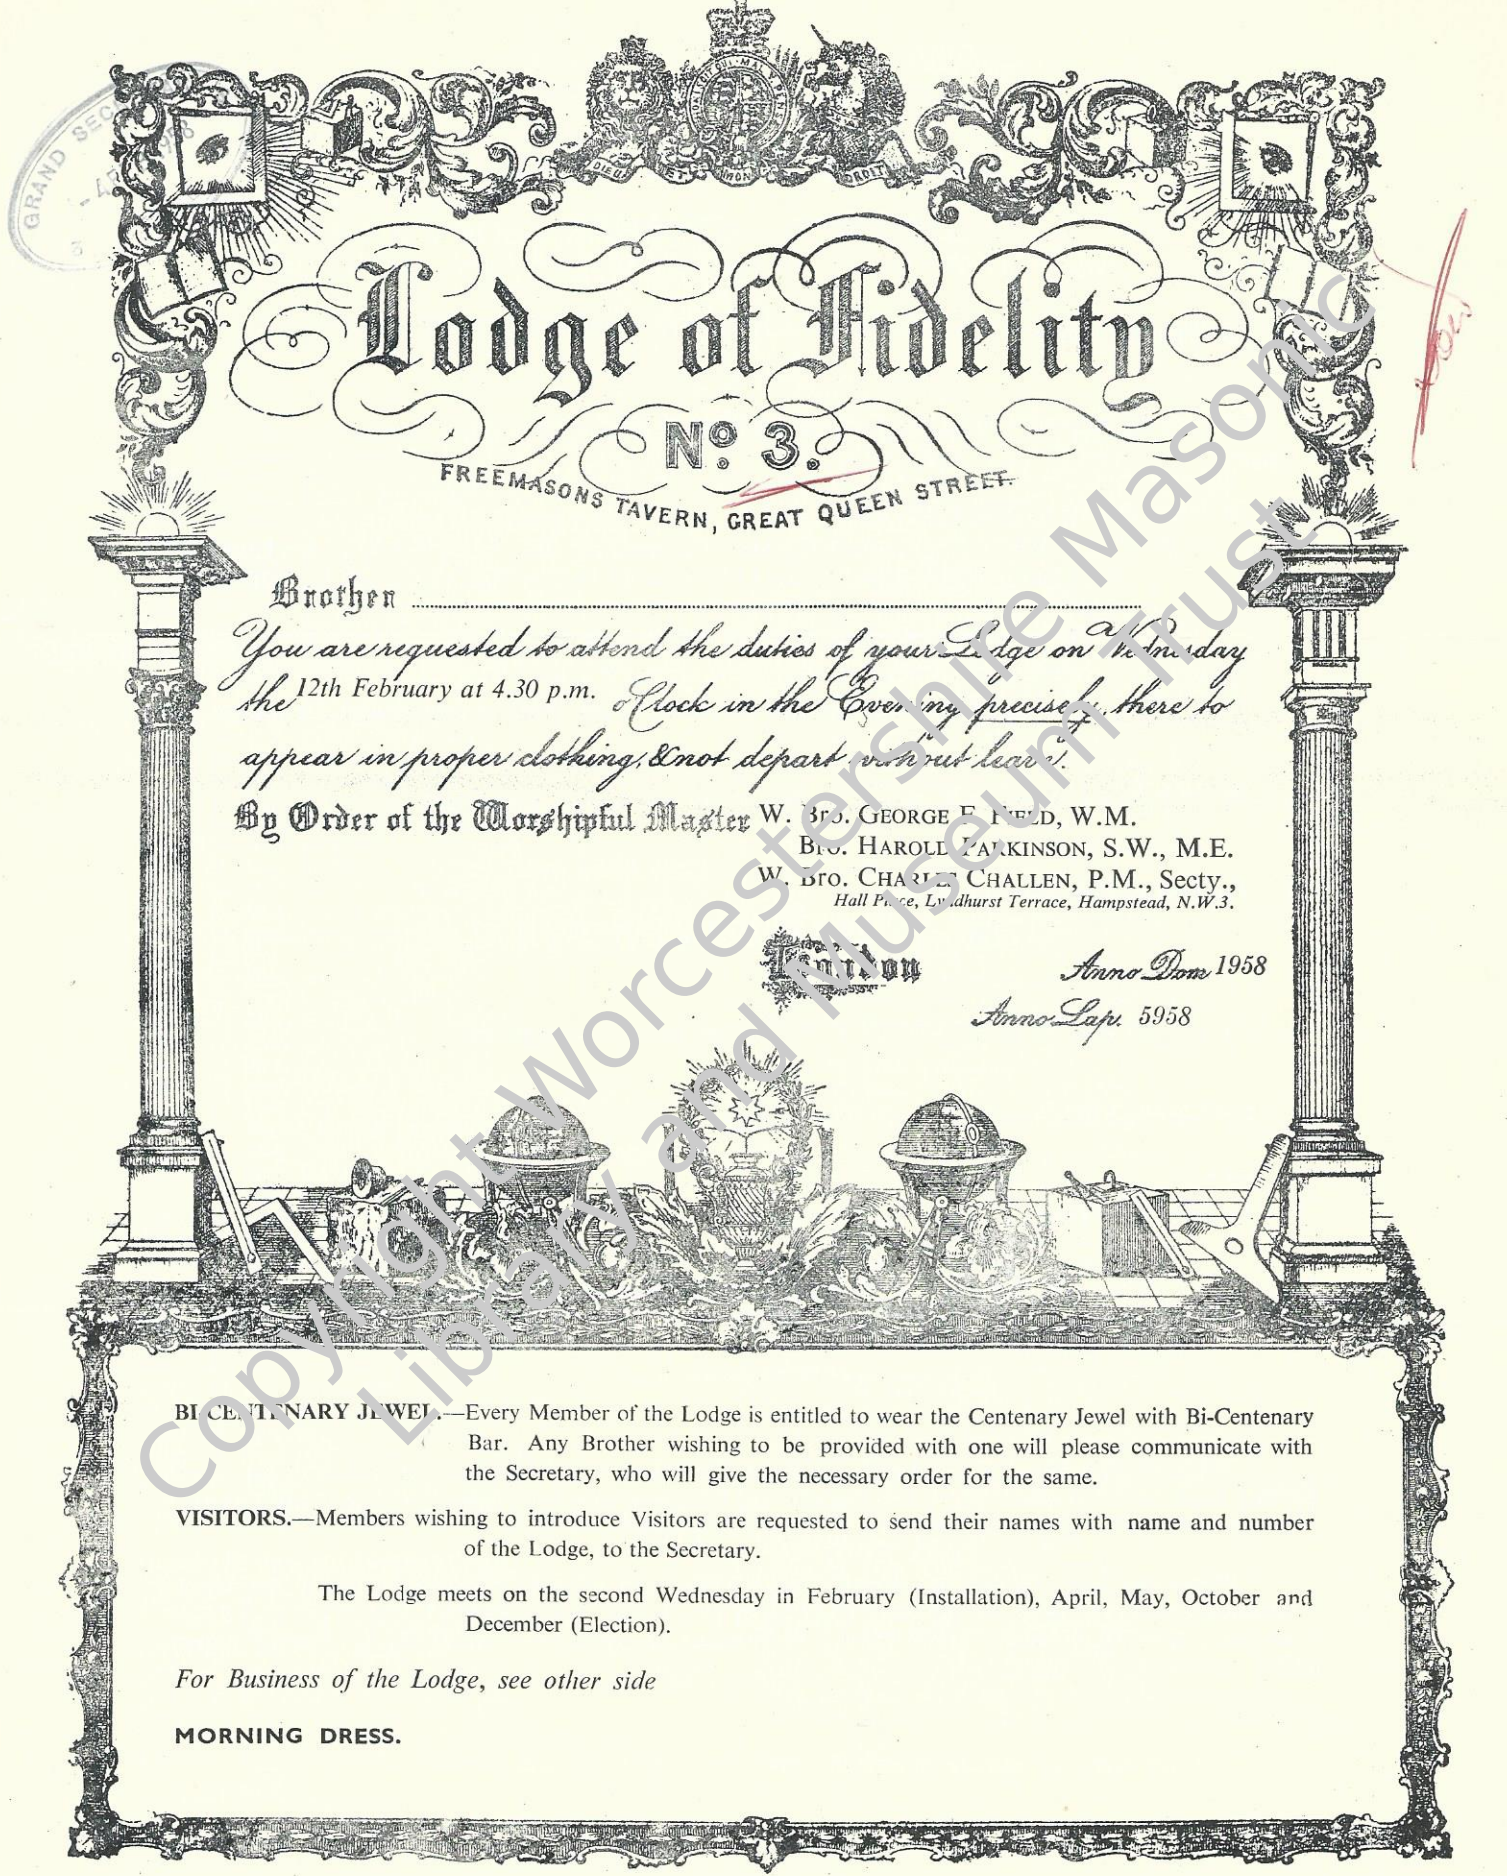 GRAND SEC
DIEU ET MON DROIT
Lodge of Fidelity
No. 3.
FREEMASONS TAVERN, GREAT QUEEN STREET.
Brother
You are requested to attend the duties of your Lodge on Wednesday
the 12th February at 4.30 p.m. o'Clock in the Evening precisely, there to
appear in proper clothing, & not depart without leave.
By Order of the Worshipful Master W. Bro. GEORGE E. FIELD, W.M.
Bro. HAROLD PARKINSON, S.W., M.E.
W. Bro. CHARLES CHALLEN, P.M., Secty.,
Hall Place, Lyndhurst Terrace, Hampstead, N.W.3.
London
Anno Dom 1958
Anno Lap. 5958
BI-CENTENARY JEWEL.—Every Member of the Lodge is entitled to wear the Centenary Jewel with Bi-Centenary
Bar. Any Brother wishing to be provided with one will please communicate with
the Secretary, who will give the necessary order for the same.
VISITORS.—Members wishing to introduce Visitors are requested to send their names with name and number
of the Lodge, to the Secretary.
The Lodge meets on the second Wednesday in February (Installation), April, May, October and
December (Election).
For Business of the Lodge, see other side
MORNING DRESS.
Copyright Worcestershire Masonic
Library and Museum Trust